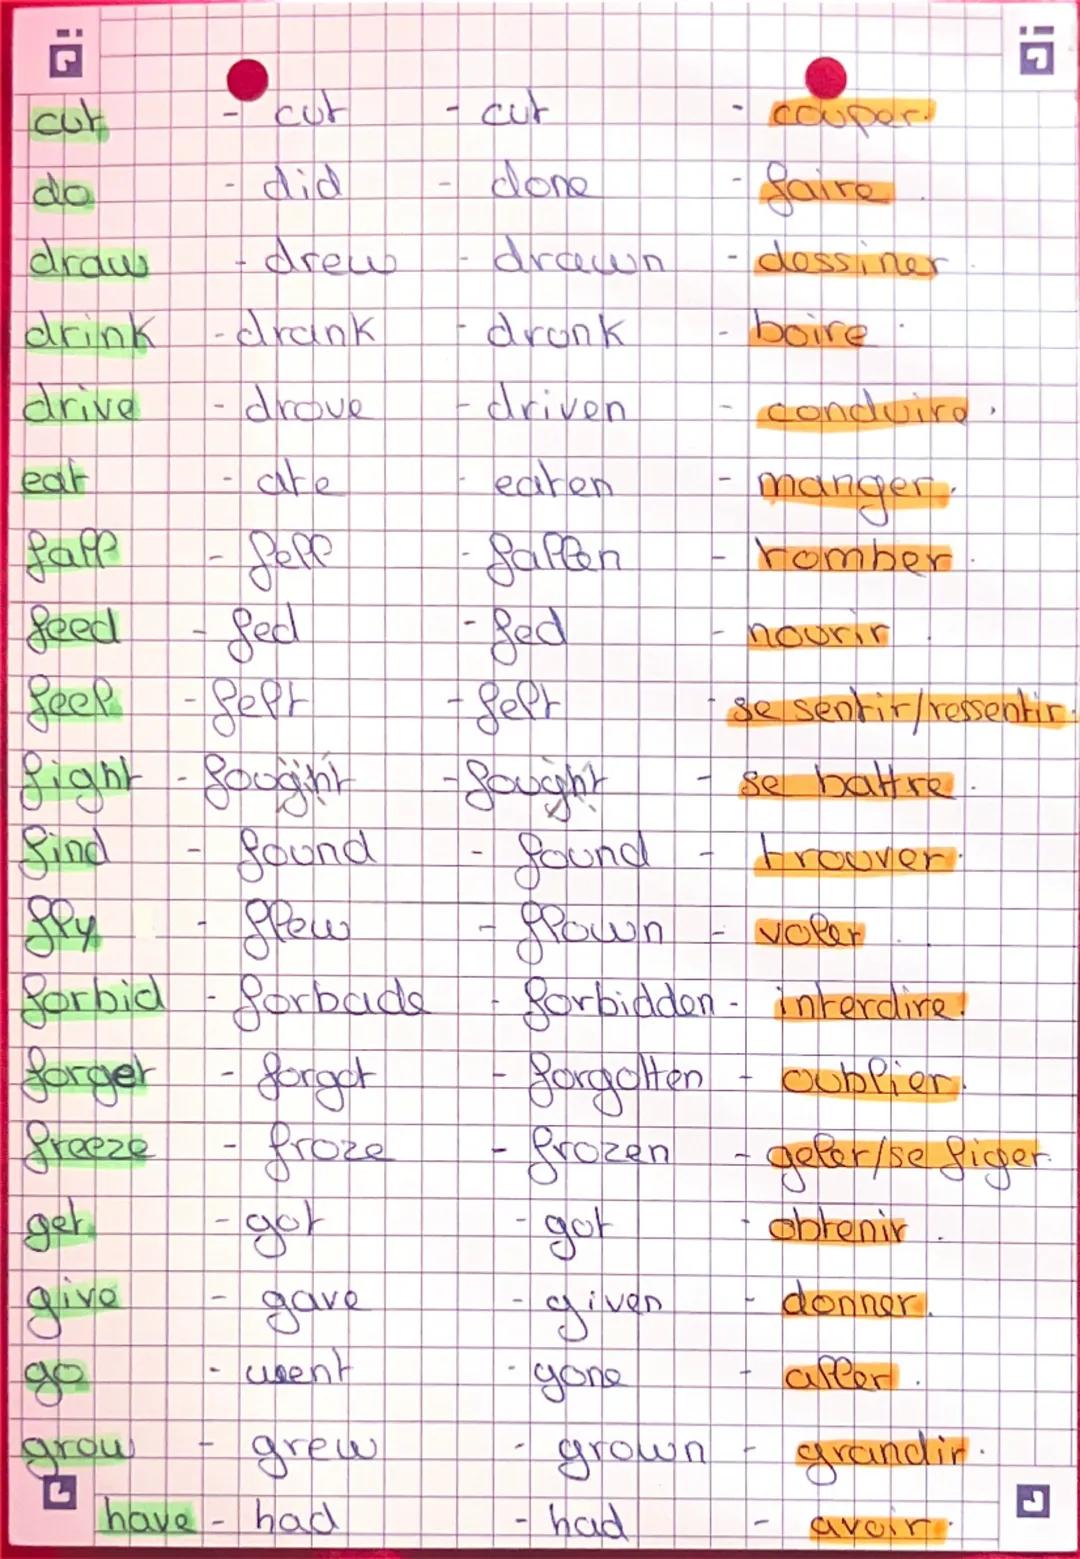 cut - cut - cut - couper.
do - did - done - faire.
draw - drew - drawn - dessiner.
drink - drank - drunk - boire.
drive - drove - driven - conduire.
eat - ate - eaten - manger.
fall - fell - fallen - tomber.
feed - fed - fed - nourir.
feel - felt - felt - se sentir/ressentir.
fight - fought - fought - se battre.
find - found - found - trouver.
fly - flew - flown - voler.
forbid - forbade - forbidden - interdire.
forget - forgot - forgotten - oublier.
freeze - froze - frozen - geler/se figer.
get - got - got - obtenir.
give - gave - given - donner.
go - went - gone - aller.
grow - grew - grown - grandir.
have - had - had - avoir.